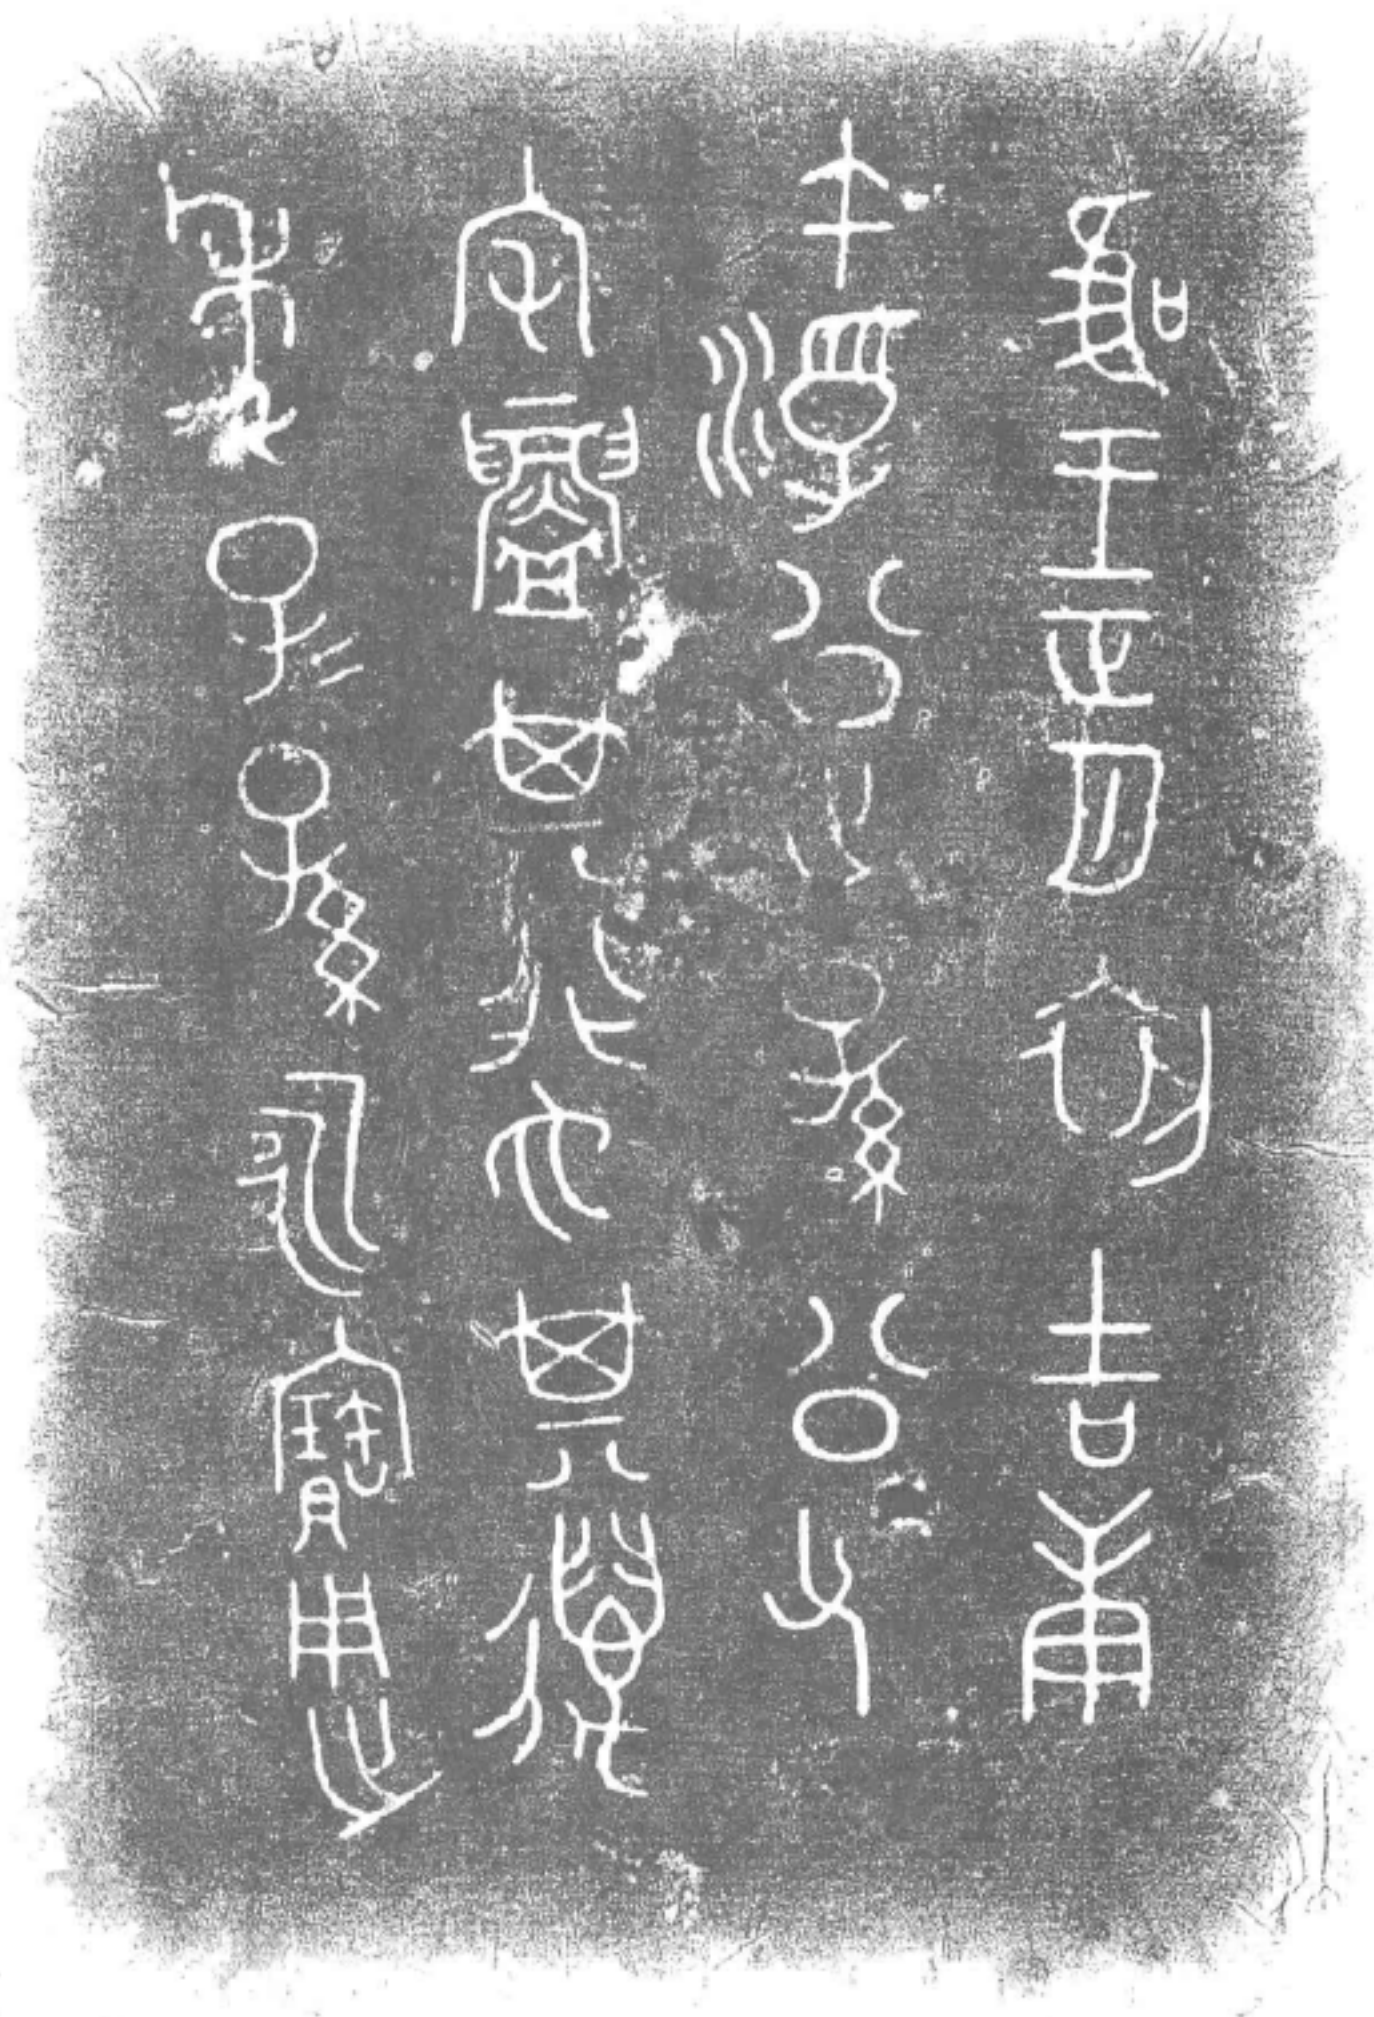 唯王正月初吉庚
午浮公之孫公父
宅鑄其行也其邁
年子=孫永寶用之